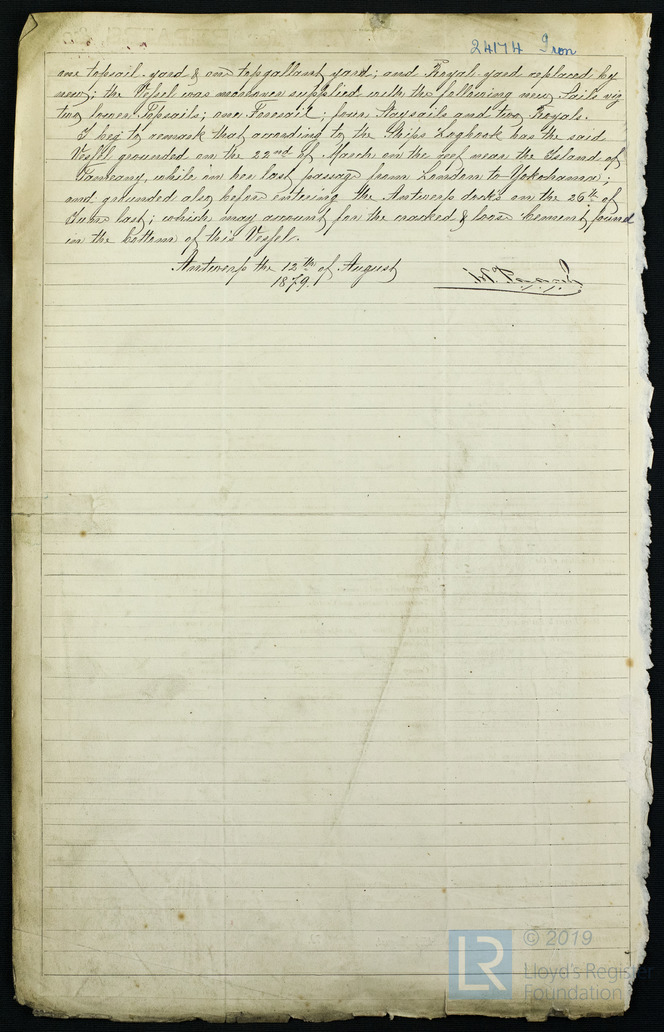 24174 Iron
one topsail-yard & one topgallant yard; and Royal yard replaced by
new; the Vessel was moreover supplied with the following new Sails viz
two lower Topsails; one Foresail; four Staysails and two Royals.
I beg to remark that according to the Ships Logbook has the said
Vessel grounded on the 22nd of March on the reef near the Island of
while on her last passage from London to Yokohama;
and grounded also before entering the Antwerp docks on the 26th of
June last; which may account for the cracked & loose Cement found
in the bottom of this Vessel.
Antwerp the 12th of August
1879.
LR © 2019
Lloyd's Register
Foundation